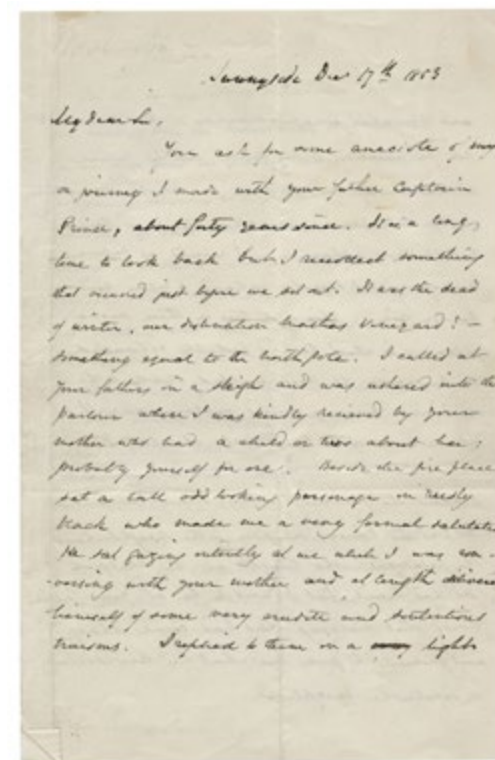 Sunnyside Dec 17th 1853
My dear Sir,
You ask for some anecdote of my
a journey I made with your father Captain
Prince, about forty years since. It is a long
time to look back but I recollect something
that occurred just before we set out. It was the dead
of winter, our destination Marthas Vineyard! –
something equal to the north pole. I called at
your fathers in a sleigh and was ushered into the
parlour where I was kindly recieved by your
mother who had a child or two about her;
probably yourself for one. Beside the fire place
sat a tall odd looking personage in rusty
black who made me a very formal salutation
He sat gazing intently at me while I was con-
versing with your mother and at length delivered
himself of some very erudite and sententious
maxims. I replied to them in a light